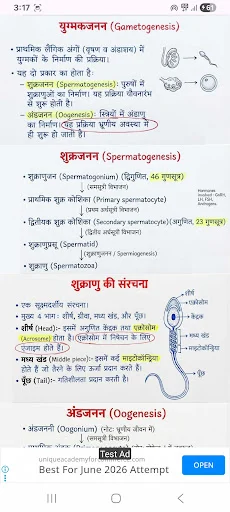 3:17
61
युग्मकजनन (Gametogenesis)
• प्राथमिक लैंगिक अंगों (वृषण व अंडाशय) में
युग्मकों के निर्माण की प्रक्रिया।
• यह दो प्रकार का होता है-
- शुक्रजनन (Spermatogenesis): पुरुषों में
शुक्राणुओं का निर्माण। यह प्रक्रिया यौवनारंभ
से शुरू होती है।
- अंडजनन (Oogenesis): स्त्रियों में अंडाणु
का निर्माण। यह प्रक्रिया भ्रूणीय अवस्था में
ही शुरू हो जाती है।
शुक्रजनन (Spermatogenesis)
• शुक्राणुजन (Spermatogonium) (द्विगुणित, 46 गुणसूत्र)
↓ (समसूत्री विभाजन)
• प्राथमिक शुक्र कोशिका (Primary spermatocyte)
↓ (प्रथम अर्धसूत्री विभाजन)
• द्वितीयक शुक्र कोशिका (Secondary spermatocyte) (अगुणित, 23 गुणसूत्र)
↓ (द्वितीय अर्धसूत्री विभाजन)
• शुक्राणुप्रसू (Spermatid)
↓ (शुक्राणुजनन / Spermiogenesis)
• शुक्राणु (Spermatozoa)
Hormones
involved - GnRH,
LH, FSH,
Androgens.
शुक्राणु की संरचना
• एक सूक्ष्मदर्शीय संरचना।
• मुख्य 4 भाग: शीर्ष, ग्रीवा, मध्य खंड, और पूँछ।
• शीर्ष (Head):- इसमें अगुणित केंद्रक तथा एक्रोसोम
(Acrosome) होता है। एक्रोसोम में निषेचन के लिए
एंजाइम होते हैं।
• मध्य खंड (Middle piece):- इसमें कई माइटोकॉन्ड्रिया
होते हैं जो तैरने के लिए ऊर्जा प्रदान करते हैं।
• पूँछ (Tail):- गतिशीलता प्रदान करती है।
शीर्ष
एक्रोसोम
केंद्रक
मध्य खंड
माइटोकॉन्ड्रिया
पूँछ
अंडजनन (Oogenesis)
• अंडजननी (Oogonium) (नोट: भ्रूणीय जीवन में)
↓ (समसूत्री विभाजन)
Test Ad
Best For June 2026 Attempt
OPEN